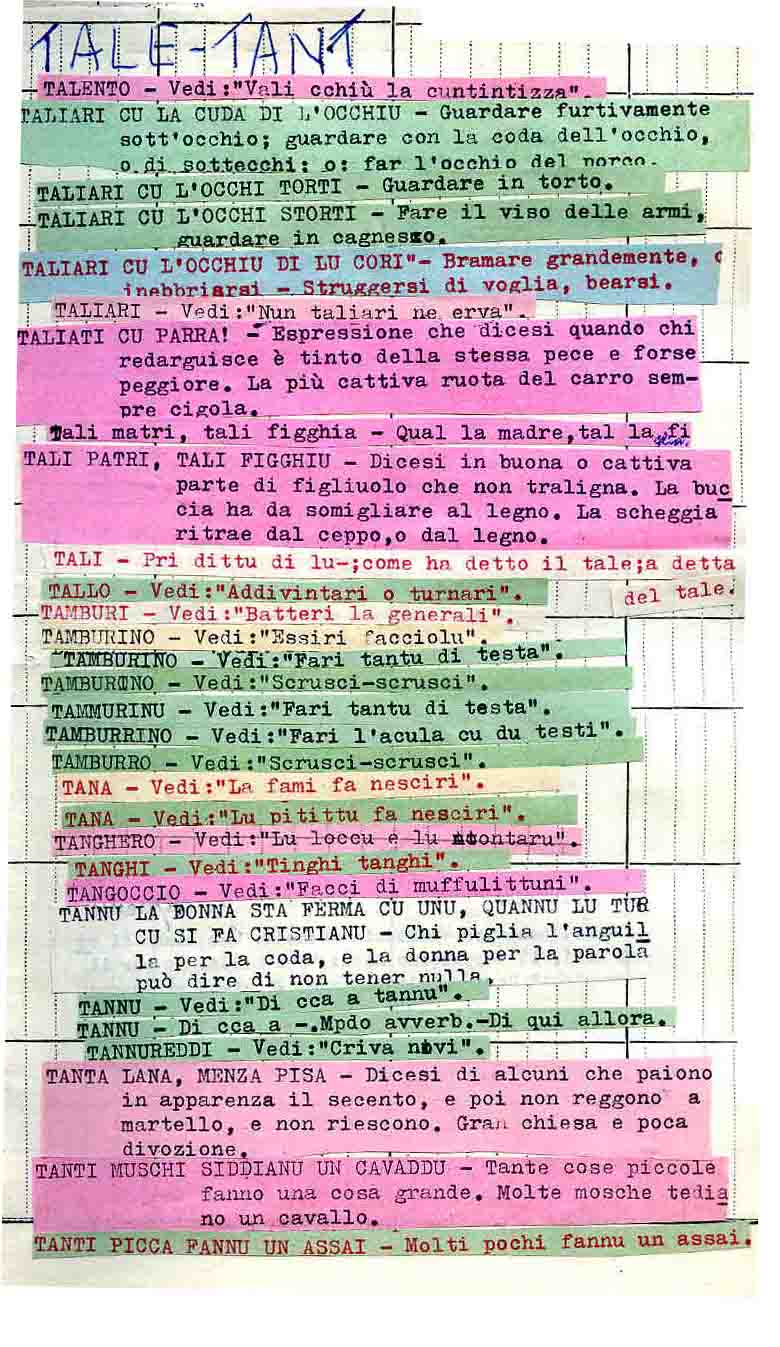 TALE-TANT
TALENTO - Vedi:"Vali cchiù la cuntintizza".
TALIARI CU LA CUDA DI L'OCCHIU - Guardare furtivamente
sott'occhio; guardare con la coda dell'occhio,
o di sottecchi; o: far l'occhio del porco.
TALIARI CU L'OCCHI TORTI - Guardare in torto.
TALIARI CU L'OCCHI STORTI - Fare il viso delle armi,
guardare in cagnesco.
TALIARI CU L'OCCHIU DI LU CORI"- Bramare grandemente,
inebbriarsi - Struggersi di voglia, bearsi.
TALIARI - Vedi:"Nun taliari ne erva".
TALIATI CU PARRA! - Espressione che dicesi quando chi
redarguisce è tinto della stessa pece e forse
peggiore. La più cattiva ruota del carro sem-
pre cigola.
Tali matri, tali figghia - Qual la madre,tal la fi
TALI PATRI, TALI FIGGHIU - Dicesi in buona o cattiva
parte di figliuolo che non traligna. La buc
cia ha da somigliare al legno. La scheggia
ritrae dal ceppo,o dal legno.
TALI - Pri dittu di lu-;come ha detto il tale;a detta
del tale.
TALLO - Vedi:"Addivintari o turnari".
TAMBURI - Vedi:"Batteri la generali".
TAMBURINO - Vedi:"Essiri facciolu".
TAMBURINO - Vedi:"Fari tantu di testa".
TAMBURINO - Vedi:"Scrusci-scrusci".
TAMMURINU - Vedi:"Fari tantu di testa".
TAMBURRINO - Vedi:"Fari l'acula cu du testi".
TAMBURRO - Vedi:"Scrusci-scrusci".
TANA - Vedi:"La fami fa nesciri".
TANA - Vedi:"Lu pitittu fa nesciri".
TANGHERO - Vedi:"Lu loccu e lu ntontaru".
TANGHI - Vedi:"Tinghi tanghi".
TANGOCCIO - Vedi:"Facci di muffulittuni".
TANNU LA DONNA STA FERMA CU UNU, QUANNU LU TUR
CU SI FA CRISTIANU - Chi piglia l'anguil
la per la coda, e la donna per la parola
può dire di non tener nulla.
TANNU - Vedi:"Di cca a tannu".
TANNU - Di cca a -.Mpdo avverb.-Di qui allora.
TANNUREDDI - Vedi:"Criva novi".
TANTA LANA, MENZA PISA - Dicesi di alcuni che paiono
in apparenza il secento, e poi non reggono a
martello, e non riescono. Gran chiesa e poca
divozione.
TANTI MUSCHI SIDDIANU UN CAVADDU - Tante cose piccole
fanno una cosa grande. Molte mosche tedia
no un cavallo.
TANTI PICCA FANNU UN ASSAI - Molti pochi fannu un assai.